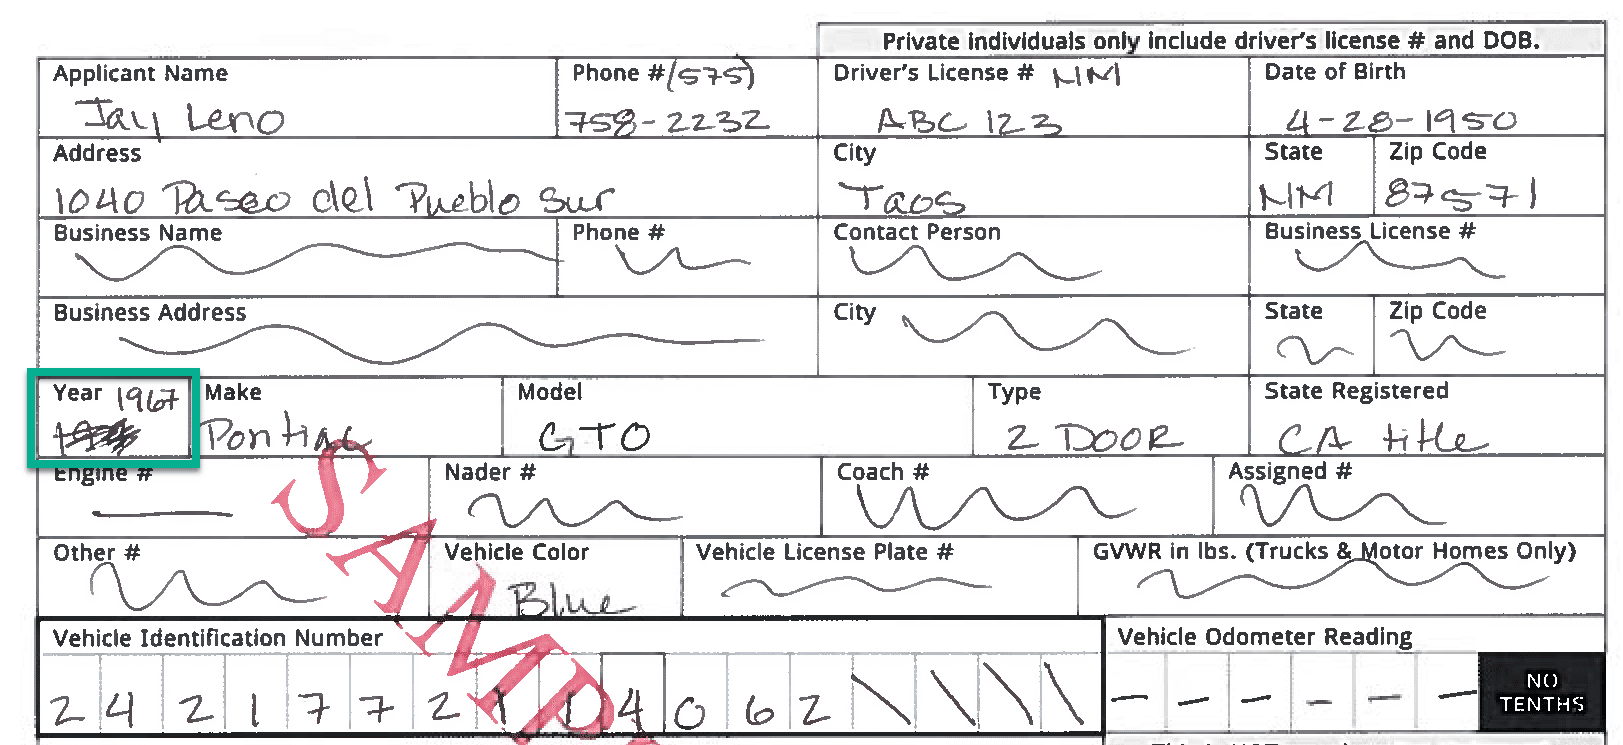 Private individuals only include driver's license # and DOB.
Applicant Name
Jay Leno
Phone # (575)
758-2232
Driver's License # NM
ABC 123
Date of Birth
4-28-1950
Address
1040 Paseo del Pueblo Sur
City
Taos
State
NM
Zip Code
87571
Business Name
Phone #
Contact Person
Business License #
Business Address
City
State
Zip Code
Year 1967
Make
Pontiac
Model
GTO
Type
2 DOOR
State Registered
CA title
Engine #
Nader #
Coach #
Assigned #
Other #
Vehicle Color
Blue
Vehicle License Plate #
GVWR in lbs. (Trucks & Motor Homes Only)
Vehicle Identification Number
2 4 2 1 7 7 2 1 1 4 0 6 2
Vehicle Odometer Reading
NO
TENTHS